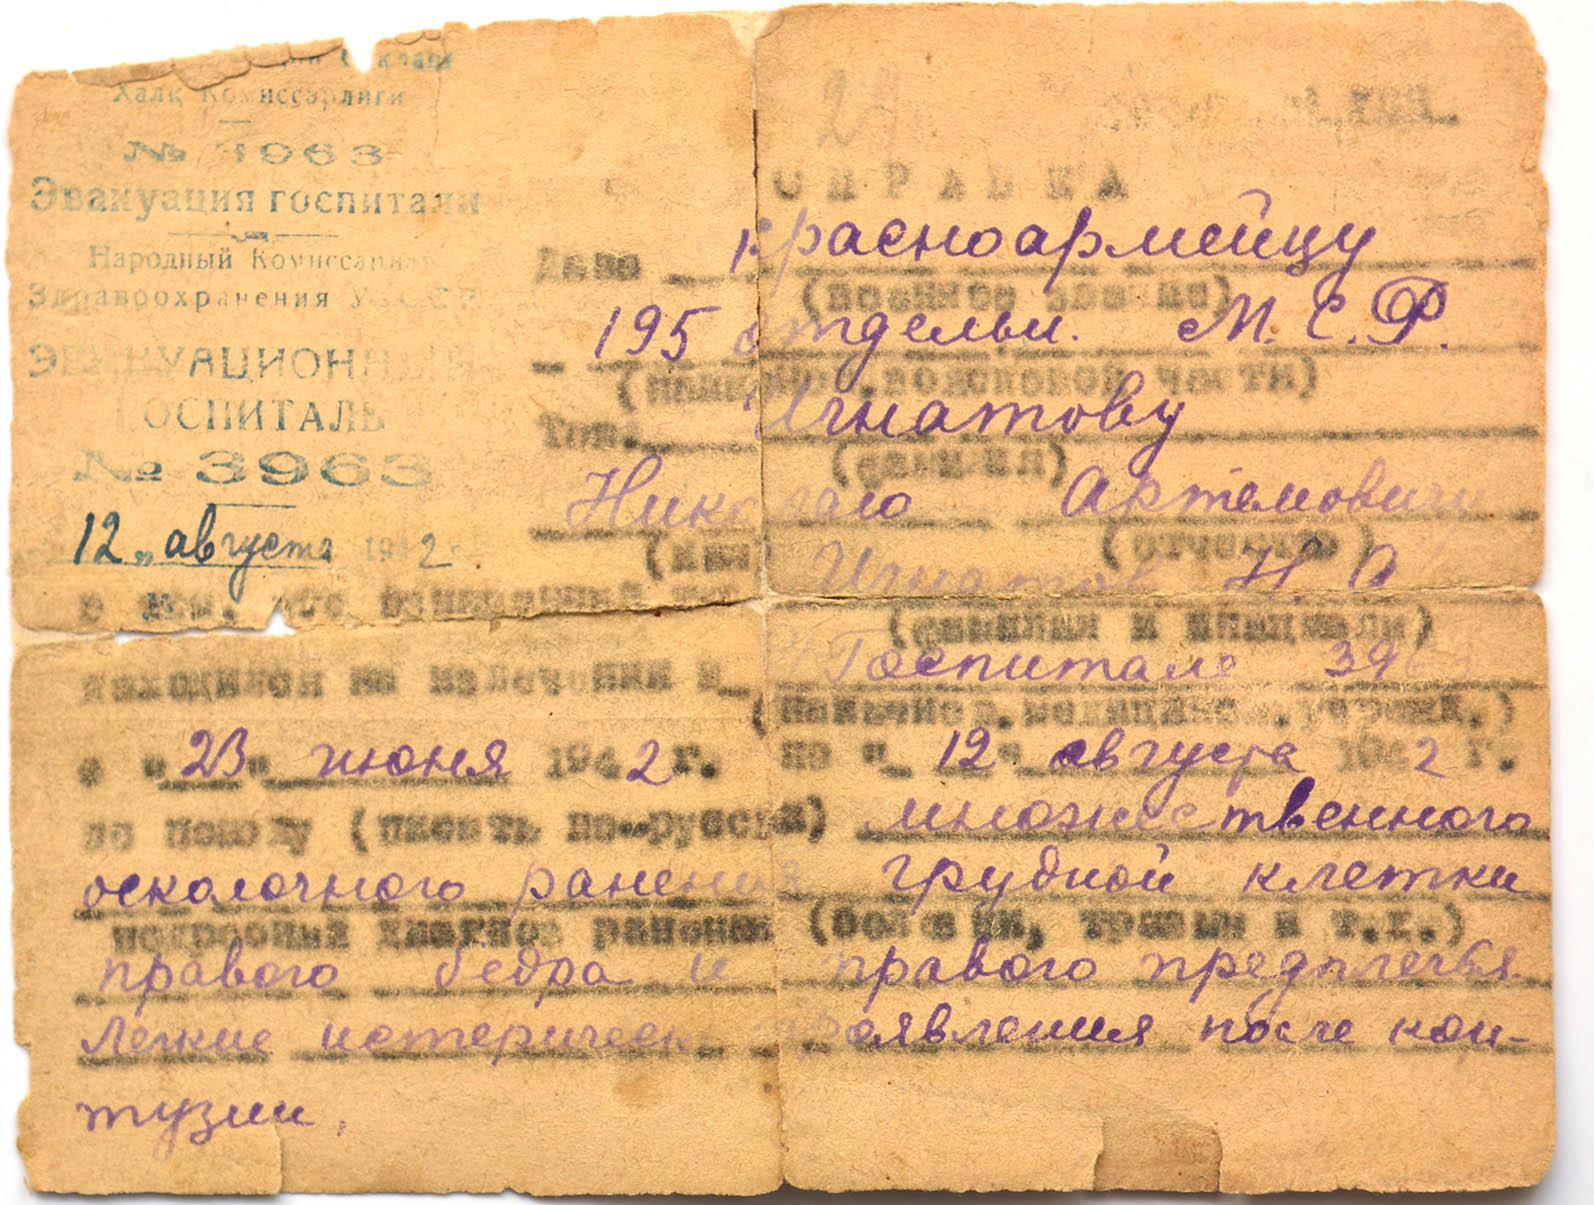 Халқ Комиссарлиги
№ 3963
Эвакуация госпитали
Народный Комиссариат
Здравоохранения УзССР
ЭВАКУАЦИОННЫЙ
ГОСПИТАЛЬ
№ 3963
12 „ августа 1942 г.
СПРАВКА
Дана красноармейцу
(военное звание)
195 отдельн. М.С.Р.
(наименов. войсковой части)
Тов. Игнатову
(фамилия)
Николаю Артемовичу
(имя) (отчество)
в том, что Игнатов Н. А
(фамилия и инициалы)
находился на излечении в Госпитале 3963
(наименов. медицинск. учрежд.)
с "23" июня 1942 г. по "12" августа 1942 г.
по поводу (писать по-русски) множественного
осколочного ранения грудной клетки
подробный диагноз ранения (болезни, травмы и т.д.)
правого бедра и правого предплечья
Легкие истерическ проявления после кон-
тузии.